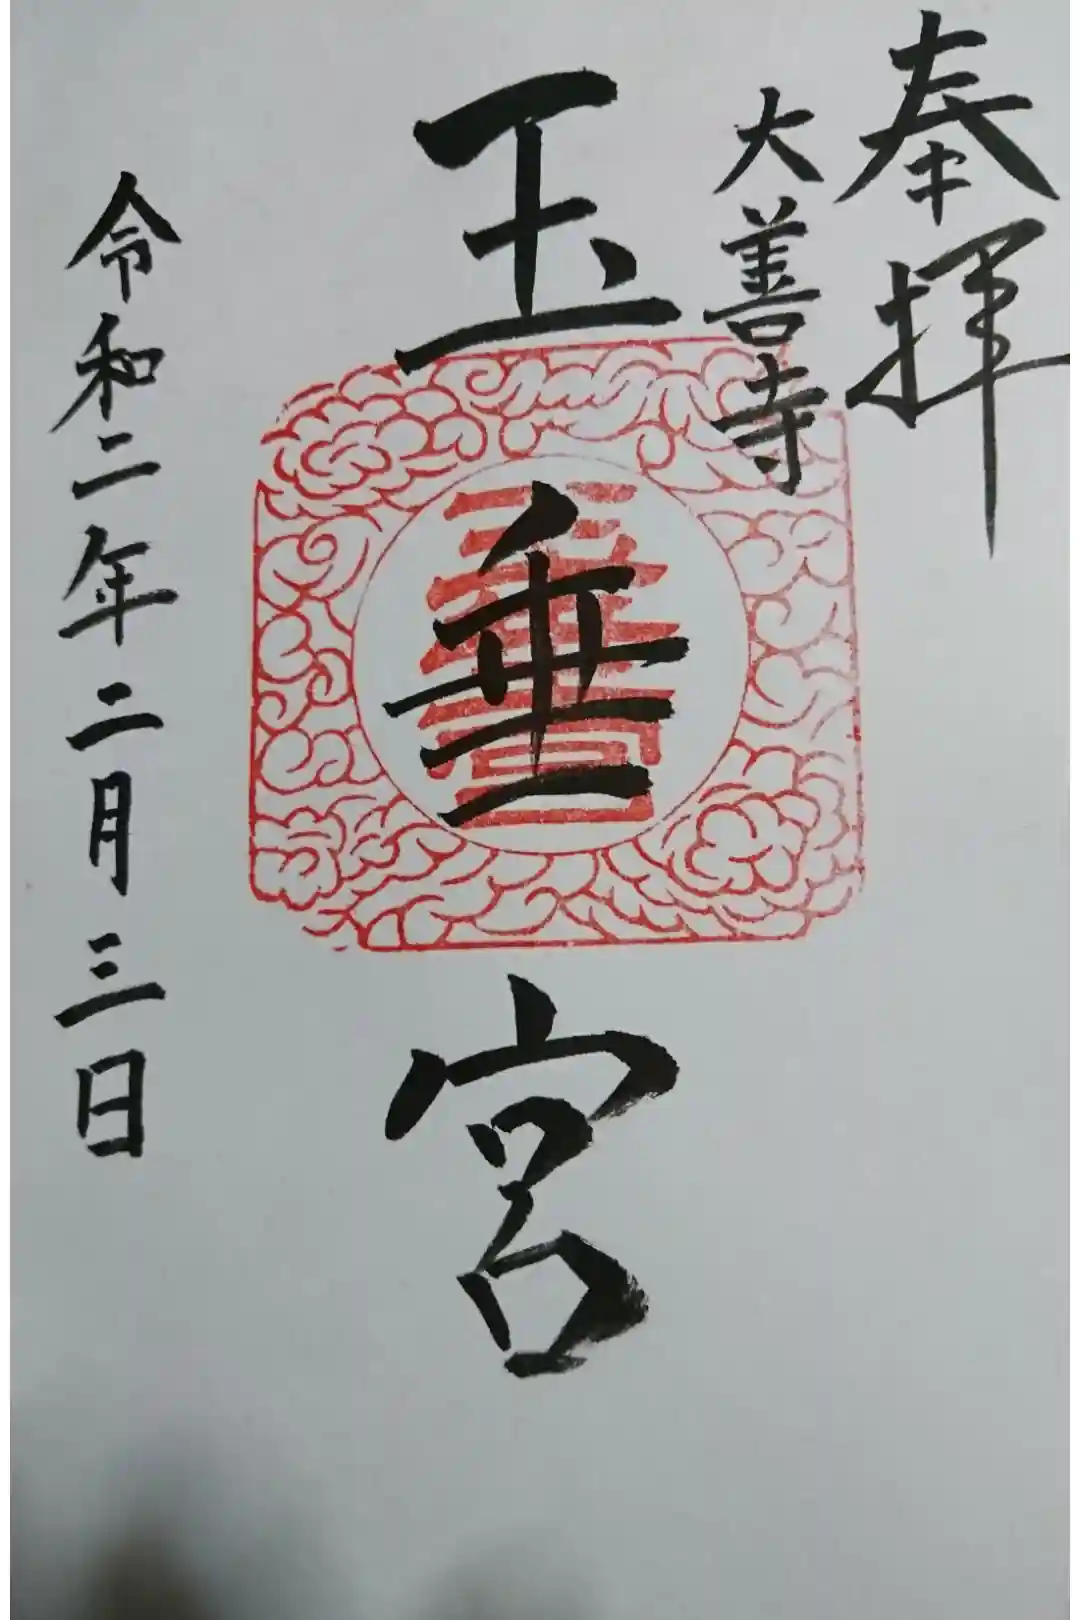 奉拝
大善寺
玉垂宮
令和二年二月三日